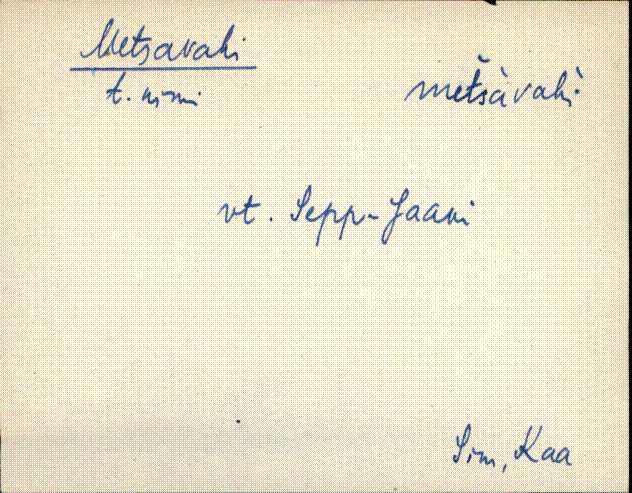 Metsavahi metsàvahì
t. nimi
vt. Sepp-Jaani
Sim, Kaa